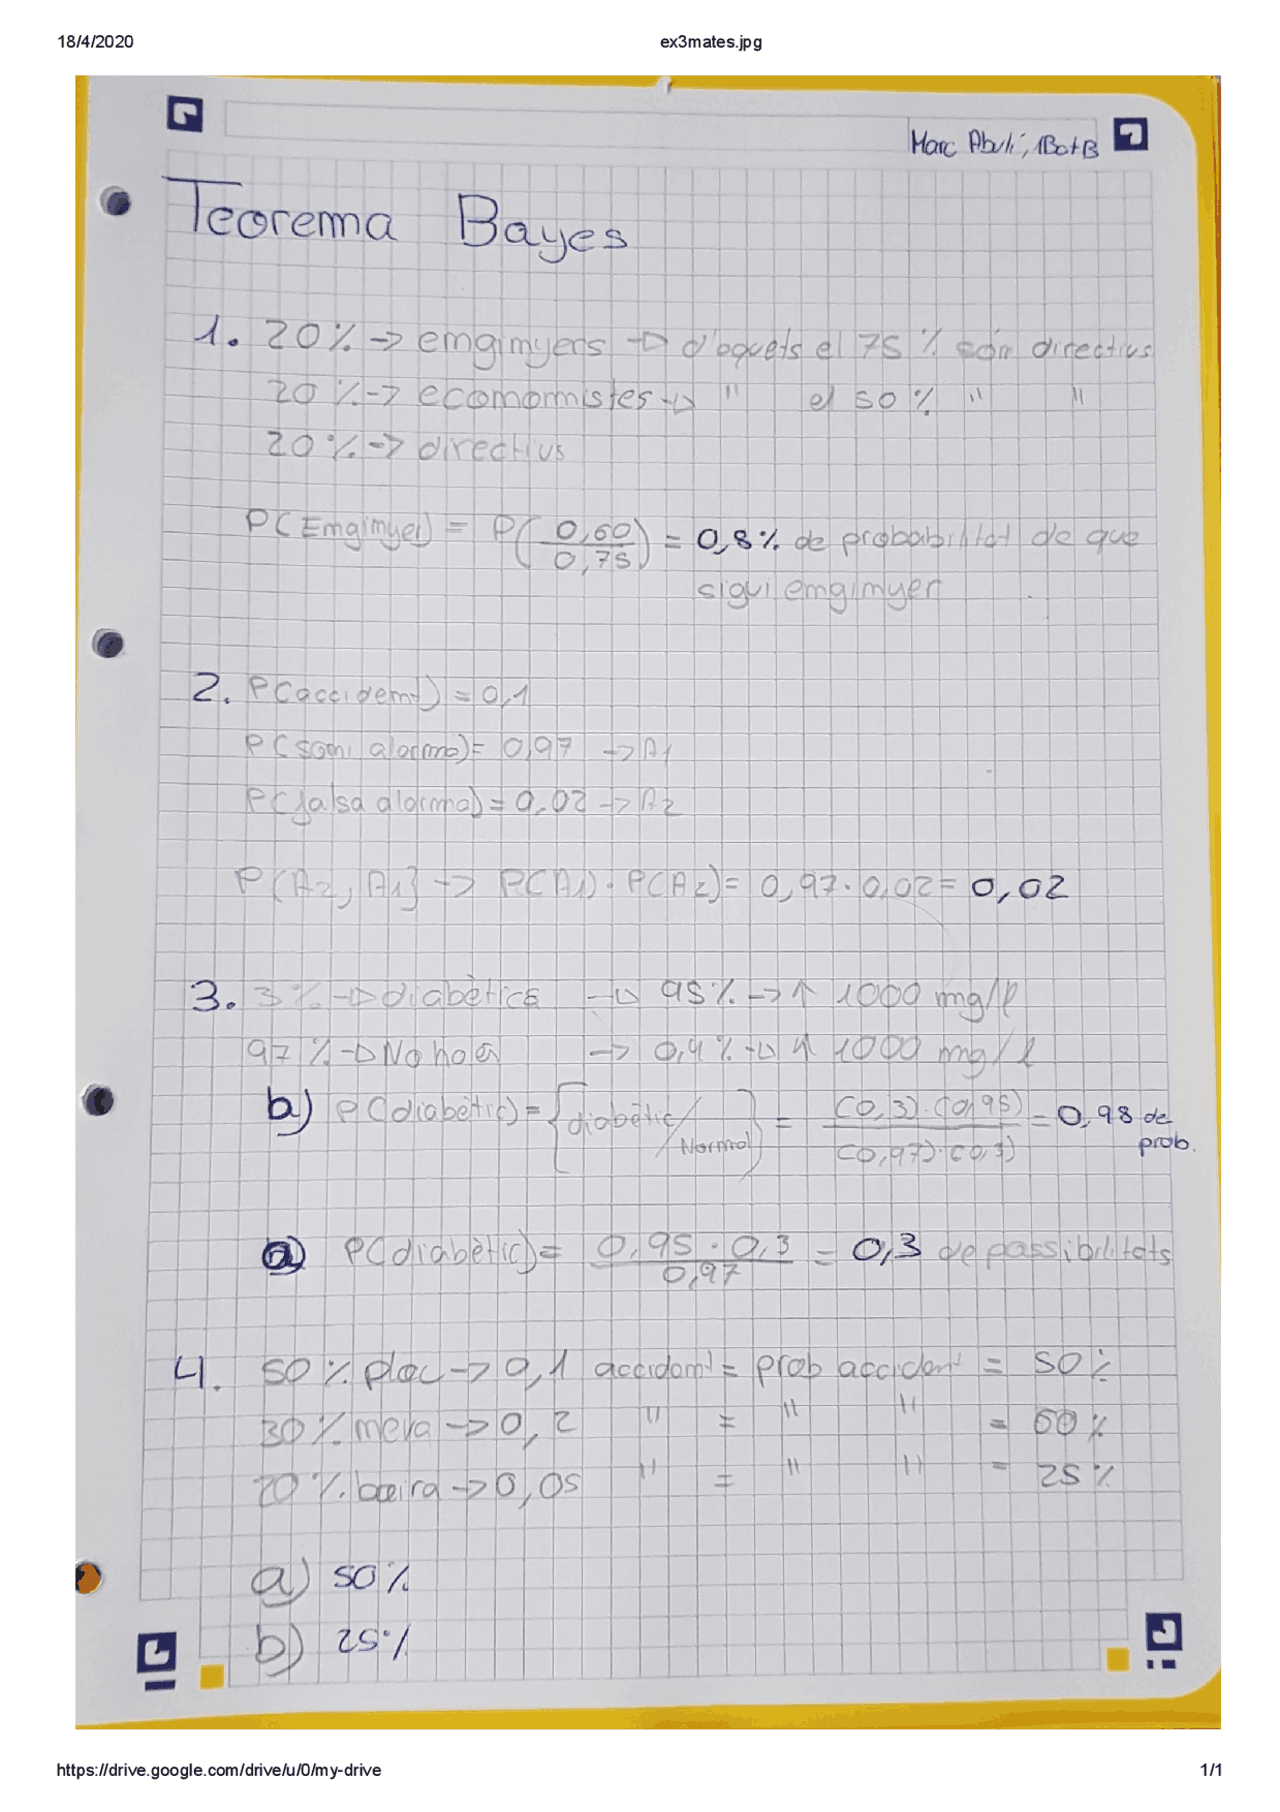 18/4/2020 ex3mates.jpg
Marc Abulí, 1BatB
Teorema Bayes
1. 20% → emgimyers → d'aquets el 75 % són directius
20 % → ecomormistes → " el 50 % " "
20 % → directius
P(Emgimyer) = P(0,60/0,75) = 0,8% de probabilitat de que
sigui emgimyer
2. P(accidemt) = 0,1
P(soni alarma) = 0,97 → A1
P(falsa alarma) = 0,02 → A2
P(A2, A1] → P(A1) · P(A2) = 0,97 · 0,02 = 0,02
3. 3 % → diabètics → 95 % → ↑ 1000 mg/l
97 % → No ho és → 0,4 % → ↑ 1000 mg/l
b) P(diabètic) = {diabètic/Normal} = (0,3)·(0,95)/(0,97)·(0,3) = 0,98 de
prob.
a) P(diabètic) = 0,95 · 0,3/0,97 = 0,3 de possibilitats
4. 50 % ploc → 0,1 accidemt = prob accident = 50 %
30 % meva → 0,2 " = " " = 60 %
20 % boira → 0,05 " = " " = 25 %
a) 50 %
b) 25 %
https://drive.google.com/drive/u/0/my-drive 1/1